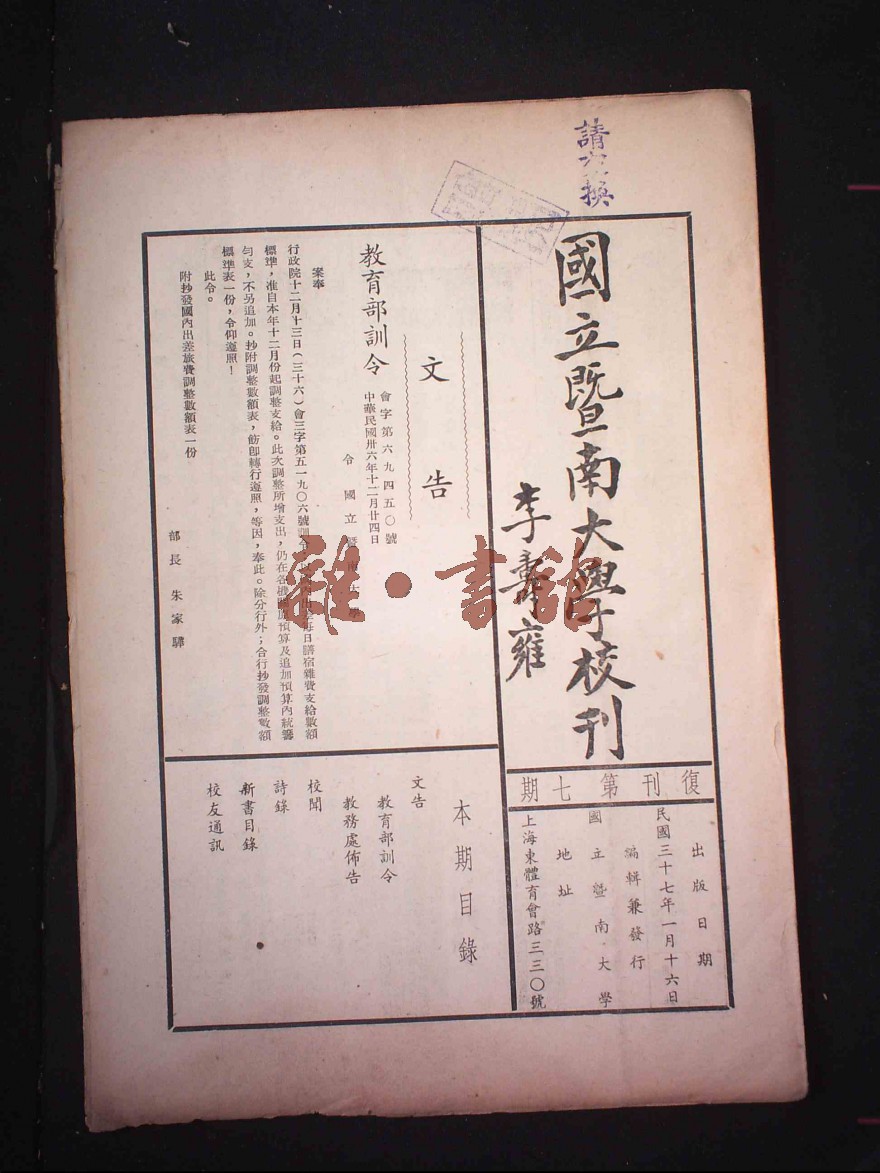 請交換
國立暨南大學校刊
李壽雍
復刊第七期
出版日期
民國三十七年一月十六日
編輯兼發行
國立暨南大學
地址
上海東體育會路三三〇號
文告
教育部訓令
會字第六九四五〇號
中華民國卅六年十二月廿四日
令國立暨南大學
案奉
行政院十二月十三日(三十六)會三字第五一九〇六號訓令,以國內出差每日膳宿雜費支給數額
標準,准自本年十二月份起調整支給。此次調整所增支出,仍在各機關原預算及追加預算內統籌
勻支,不另追加。抄附調整數額表,飭卽轉行遵照,等因,奉此。除分行外;合行抄發調整數額
標準表一份,令仰遵照!
此令。
附抄發國內出差旅費調整數額表一份
部長 朱家驊
本期目錄
文告
教育部訓令
教務處佈告
校聞
詩錄
新書目錄
校友通訊
雜·書館